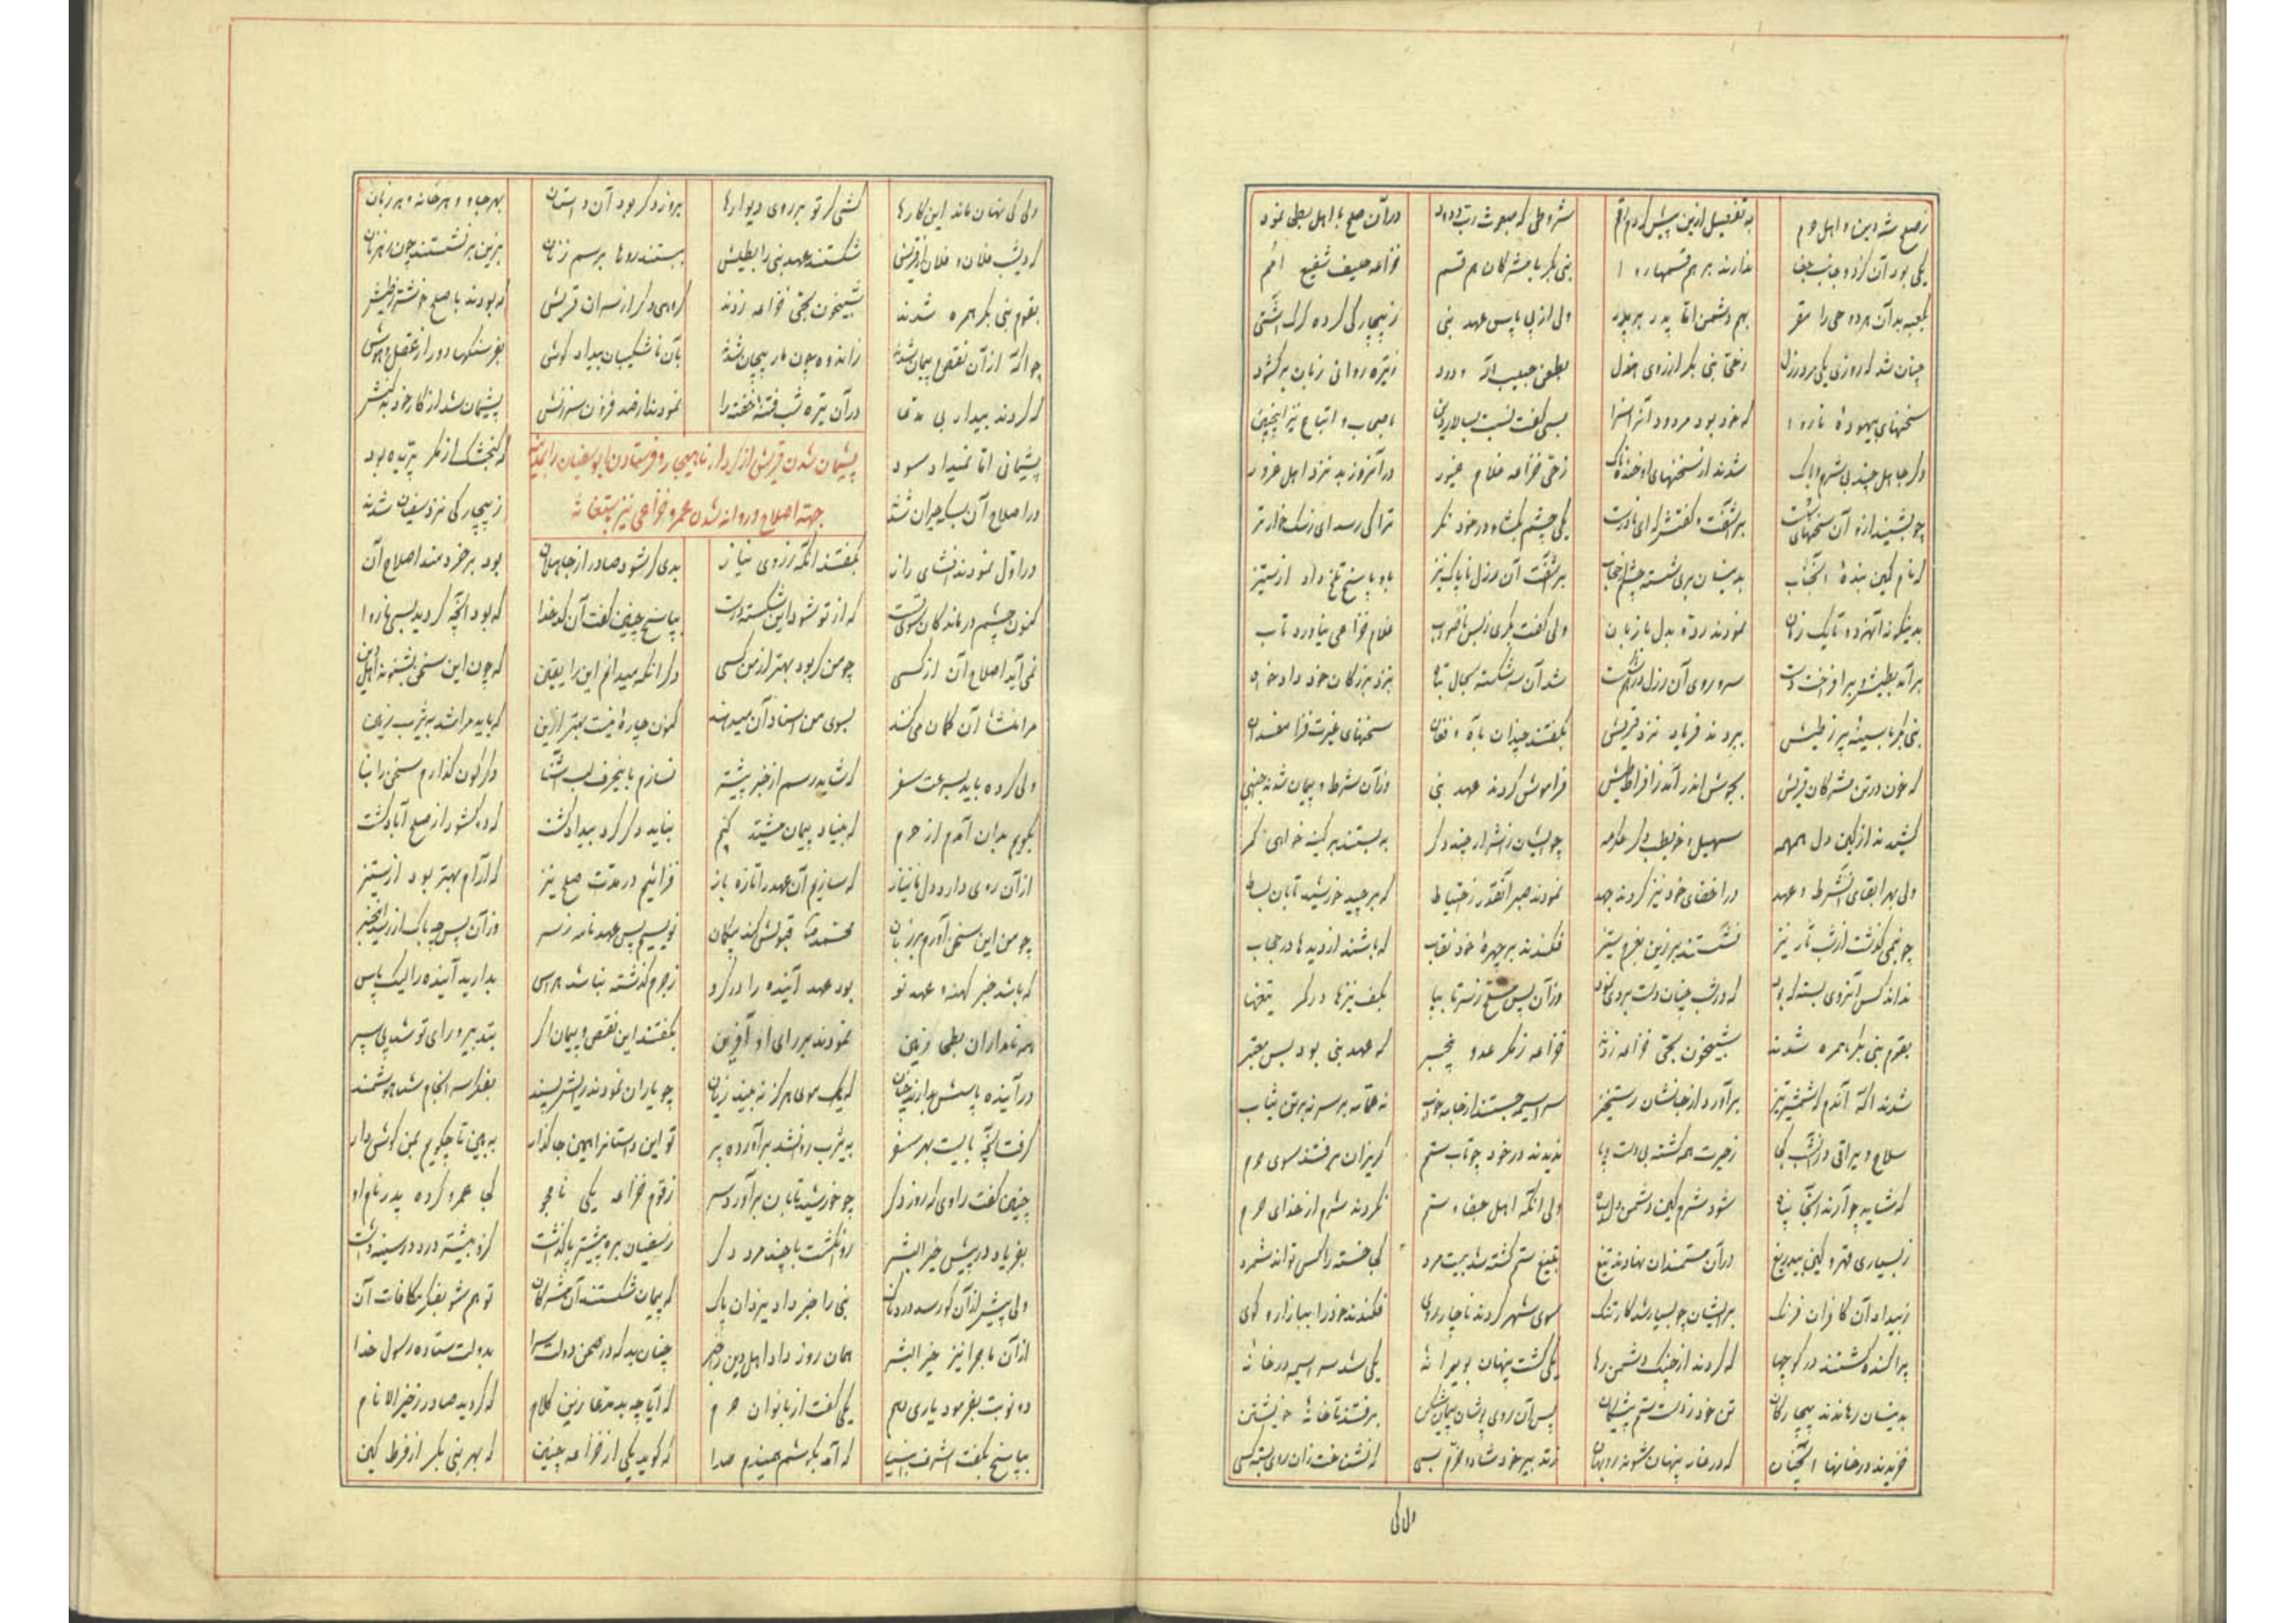 ز صلح شه دین و اهل حرم به تفصیل ازین پیش کردم رقم شروطی که مبعوث رب ودود در آن صلح با اهل بطحی نمود
یکی بود آن کز دو جانب جفا ندارند بر هم قسمها روا بنی بکر با مشرکان هم قسم خزاعه حلیف شفیع امم
بکعبه بد آن هر دو حی را مقر بهم دشمن اما پدر بر پدر ولی از پی پاس عهد نبی ز بیچارگی کرده گرگ آشتی
چنان شد که روزی یکی مرد رذل ز حی بنی بکر از روی هزل بطعن حبیب اله ودود ز تیره روانی زبان برگشود
سخنهای بیهوده ناروا که خود بود مردود آنرا سزا بسی گفت نسبت بسالار دین باصحاب و اتباع نیز اینچنین
دگر جاهل چند بی شرم و باک شدند از سخنهای او خنده ناک ز حی خزاعه غلام غیور در آنروز بد نزد اهل غرور
چو بشنید ازو آن سخنهای سست برآشفت و گفتش که ای نادرست یکی چشم بگشا و در خود نگر ترا کی رسد ای ز سگ خوارتر
که نام کمین بنده آنجناب بدینسان بری شسته چشم از حجاب برآشفت آن رذل ناپاک نیز باو پاسخ تلخ داد از ستیز
بدینگونه آنهر دو تا یک زمان نمودند رد و بدل با زبان ولی گفت بکری ز بس ناصواب غلام خزاعی نیاورد تاب
برآمد بطیش و برافراخت دست سر و روی آن رذل درهم شکست شد آن سر شکسته بحال تباه بنزد بزرگان خود دادخواه
بنی بکر با سینه پر ز طیش ببردند فریاد نزد قریش بگفتند چندان بآه و فغان سخنهای غیرت فزا مفسدان
که خون در تن مشرکان قریش بجوش اندر آمد ز افراط طیش فراموش کردند عهد نبی وز آن شرط و پیمان شدند اجنبی
کشیدند از کین دل همهمه سهیل و حویطب دگر عکرمه چو ایشان ز اشرار چند دگر ببستند بر کینه خواهی کمر
ولی بهر ابقای آن شرط و عهد در اخفای خود نیز کردند جهد نمودند صبر آنقدر ز احتیاط که برچید خورشید تابان بساط
چو نیمی گذشت از شب تار نیز نشستند بر زین بعزم ستیز فکندند بر چهره خود نقاب که باشند از دیدها در حجاب
نداند کس آنروی بسته که بود که در شب چنان دست بردی نمود وز آن پس مسلح ز سر تا بپا بکف نیزها در کمر تیغها
بقوم بنی بکر همره شدند شبیخون بحی خزاعه زدند خزاعه ز مکر عدو بیخبر که عهد نبی بود بس معتبر
شدند آگه آندم که شمشیر تیز برآورد از جانشان رستخیز سراسیمه جستند از جا بخواب نه عمامه بر سر نه بر تن ثیاب
سلاح و یراقی در آن شب کجا ز حیرت همه گشته بی دست و پا ندیدند در خود چو تاب ستم گریزان برفتند سوی حرم
که شاید چو آرند آنجا پناه شود شرم کین دشمن دل سیاه ولی آنگه اهل جفا و ستم نکردند شرم از خدای حرم
ز بسیاری قهر و کین بیدریغ در آن مستمندان نهادند تیغ بتیغ ستم کشته شد بیست مرد کجا خسته را کس تواند شمرد
ز بیداد آن کافران فرنگ بر ایشان چو بسیار شد کار تنگ سوی شهر کردند ناچار روی فکندند خود را ببازار و کوی
پراکنده گشتند در کوچها که گردند از چنگ دشمن رها یکی گشت پنهان بویرانه یکی شد سراسیمه در خانه
بدینسان رهاندند بیچارگان تن خود ز دست ستم پیشگان پس آن روی پوشان پیمان شکن برفتند تا خانه خویشتن
خزیدند در خانها آنچنان که در غار پنهان شوند روبهان زند بر خود شاد و خرم بسی که نشناخت زان روی بسته کسی
ولی کی
ولی کی نهان ماند این کارها کشی گر تو بر روی دیوارها بروز دگر بود آن داستان بهر جا و هر خانه و هر زبان
که دیشب فلان و فلان از قریش شکستند عهد نبی را بطیش ببستند روها برسم زنان بزین برنشستند چون رهزنان
بقوم بنی بکر همره شدند شبیخون بحی خزاعه زدند گروهی دگر از سران قریش که بودند با صلح خوشتر ز طیش
چو آگه از آن نقض پیمان شدند ز اندوه چون مار پیچان شدند بآن ناشکیبان بیداد کوش بفرسنگها دور از عقل و هوش
که کردند بیدار بی مدعا در آن تیره شب فتنه خفته را نمودند از حد فزون سرزنش پشیمان شد از کار خود بدکنش
پشیمانی اما نمیداد سود که گنجشک از مکر پریده بود
پشیمان شدن قریش از کردار ناهنجار و فرستادن ابوسفیان را بمدینه
در اصلاح آن بسکه حیران شدند ز بیچارگی نزد سفیان شدند
جهت اصلاح و روانه شدن عمرو خزاعی نیز باستغاثه
در اول نمودند افشای راز بگفتند آنگه ز روی نیاز بدی گر شود صادر از جاهلان بود بر خردمند اصلاح آن
کنون چشم درماندگان سوی تست که از تو شود این شکسته درست بپاسخ چنین گفت آن کدخدا که بود آنچه کردید بس ناروا
نمی آید اصلاح آن از کسی چو من گر بود بهتر از من کسی دگر آنکه میدانم این را یقین که چون این سخن بشنوند اهل دین
مرا منشأ آن گمان می کنند بسوی من اسناد آن میدهند کنون چاره نیست بهتر ازین که باید مرا شد به یثرب زمین
ولی کرده باید بسرعت سفر که شاید رسم از خبر پیشتر نسازم باینحرف لب آشنا دگرگون گذارم سخن را بنا
بگویم بدان آمدم از حرم که بنیاد پیمان مشید کنم نباید دگر گرد بیداد گشت که ده کشور از صلح آباد گشت
از آن روی دارد دل ما نیاز که سازیم آن عهد را تازه باز فزائیم در مدت صلح نیز که آرام بهتر بود از ستیز
چو من این سخن آورم بر زبان محمد قبولش کند بیگمان نویسیم پس عهدنامه ز سر وز آن پس چه باک ار رسد این خبر
که باشد خبر کهنه و عهد نو بود عهد آینده را در گرو ز جرم گذشته نباشد هراس بدارید آینده را لیک پاس
همه نامداران بطحی زمین نمودند بر رای او آفرین بگفتند این نقص و پیمان اگر بتدبیر و رای تو شد پی سپر
در آینده پاسش بداریم چنان که یک موی هرگز نه بیند زیان چو یاران نمودند رایش پسند بفکر سرانجام شد هوشمند
گرفت آنچه بایست بهر سفر به یثرب روان شد برآورده پر تو این داستانرا همین جا گذار به بین تا چگویم بمن گوش دار
چنین گفت راوی که روز دگر چو خورشید تابان برآورد سر ز قوم خزاعه یکی نامجو کجا عمرو کرده پدر نام او
بفریاد در پیش خیرالبشر روان گشت با چند مرد دگر ز سفیان بره پیشتر پا گذاشت کزو بیشتر درد در سینه داشت
ولی پیشتر زآن کو رسد دردناک نبی را خبر داد یزدان پاک که پیمان شکستند آن مشرکان تو هم شو بفکر مکافات آن
از آن ماجرا نیز خیرالبشر همان روز داد اهل دین را خبر چنان بد که در صحن دولتسرا بدولت ستاده رسول خدا
دو نوبت بفرمود یاری دهم یکی گفت از بانوان حرم که آیا چه بد مدعا زین کلام که گردید صادر ز خیرالانام
بپاسخ بگفت اشرف انبیا که آمد بگوشم همیندم صدا که گوید یکی از خزاعه چنین که بهر بنی بکر از فرط کین